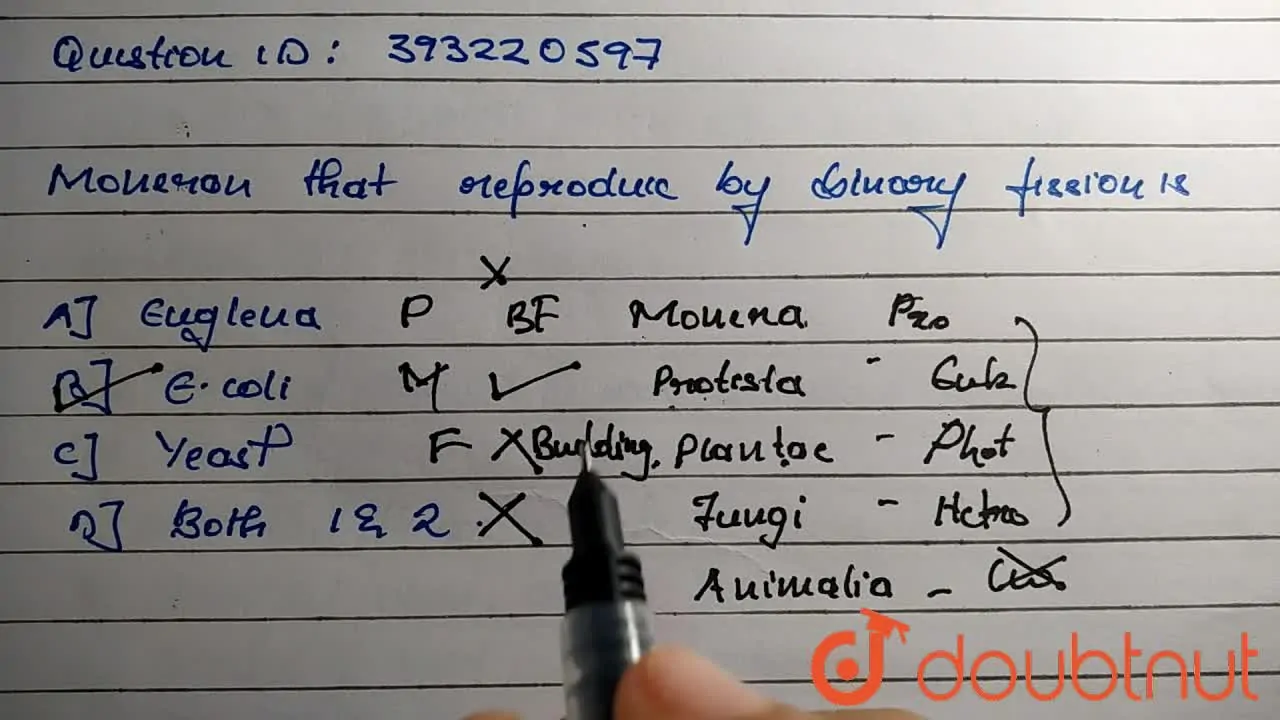 Question ID: 393220597
Moneran that reproduce by binary fission is
A] Euglena P X BF Monera Pro
B] E.coli M ✓ Protista - Euk
C] Yeast F X Budding. Plantae - Phot
D] Both 1 & 2 X Fungi - Hetro
Animalia -
doubtnut